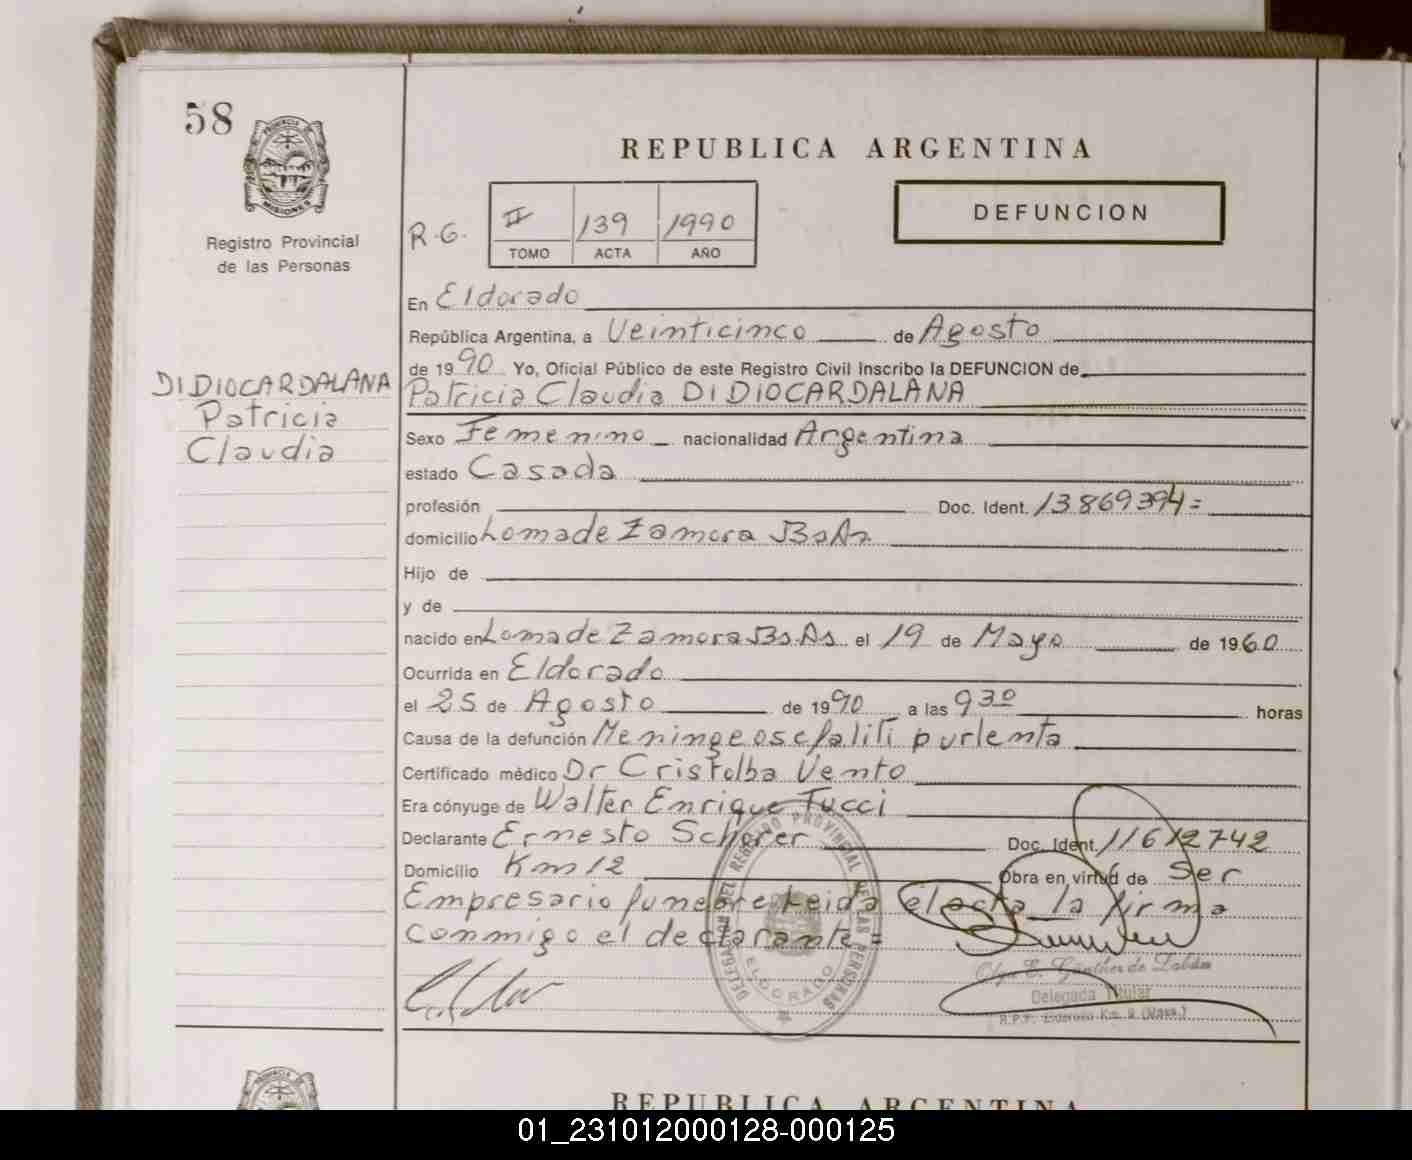 58
PROVINCIA DE
MISIONES
Registro Provincial
de las Personas
REPUBLICA ARGENTINA
DEFUNCION
R.G. II 139 1990
TOMO ACTA AÑO
En Eldorado
República Argentina, a Veinticinco de Agosto
de 1990 Yo, Oficial Público de este Registro Civil Inscribo la DEFUNCION de
DI DIOCARDALANA
Patricia
Claudia
Patricia Claudia DI DIOCARDALANA
Sexo Femenino nacionalidad Argentina
estado Casada
profesión Doc. Ident. 13869394=
domicilio Lomade Zamora BsAs.
Hijo de
y de
nacido en Lomade Zamora Bs.As. el 19 de Mayo de 1960
Ocurrida en Eldorado
el 25 de Agosto de 1990 a las 9 30 horas
Causa de la defunción Meningeosefaliti purlenta
Certificado médico Dr Cristolba Vento
Era cónyuge de Walter Enrique Tucci
Declarante Ernesto Scherer Doc. Ident. 11612742
Domicilio Km 12 Obra en virtud de Ser
Empresario funebre Leida el acta la firma
conmigo el declarante=
DELEGACION DEL REGISTRO PROVINCIAL DE LAS PERSONAS
ELDORADO
Olga E. Günther de
Delegada Titular
R.P.P. Eldorado Km. 9 (Mnes.)
REPUBLICA ARGENTINA
01_231012000128-000125